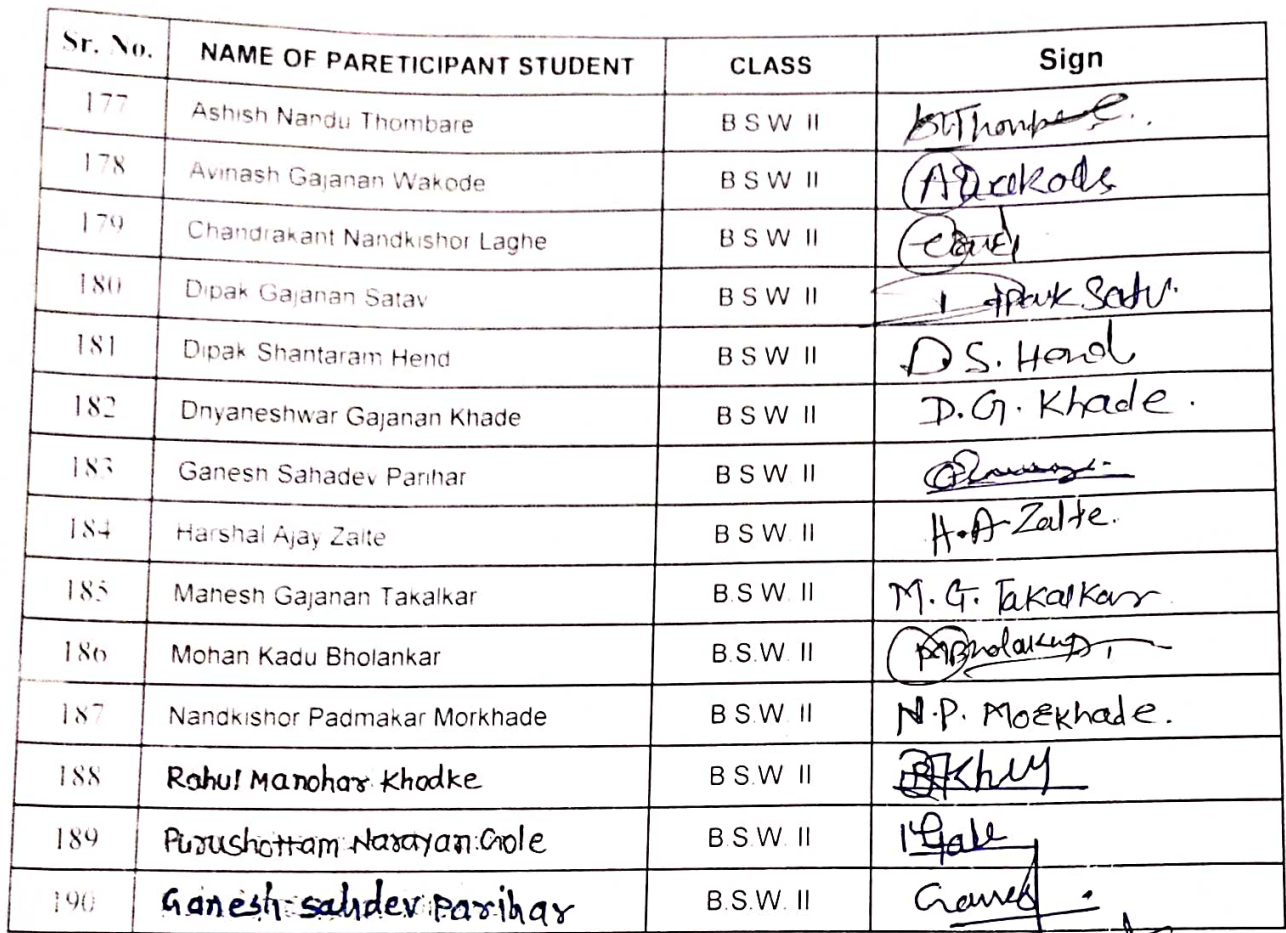 Sr. No. NAME OF PARETICIPANT STUDENT CLASS Sign
177 Ashish Nandu Thombare B S W II
178 Avinash Gajanan Wakode B S W II
179 Chandrakant Nandkishor Laghe B S W II
180 Dipak Gajanan Satav B S W II
181 Dipak Shantaram Hend B S W II D S. Hend
182 Dnyaneshwar Gajanan Khade B S W II D. G. Khade.
183 Ganesh Sahadev Parihar B S W. II
184 Harshal Ajay Zalte B S W II H.A Zalte.
185 Manesh Gajanan Takalkar B.S W. II M. G. Takalkar
186 Mohan Kadu Bholankar B.S.W. II
187 Nandkishor Padmakar Morkhade B S.W. II N.P. Morkhade.
188 Rahul Manohar Khodke B S.W II
189 Purushottam Narayan Gole B.S.W. II
190 Ganesh sahdev Parihar B.S.W. II